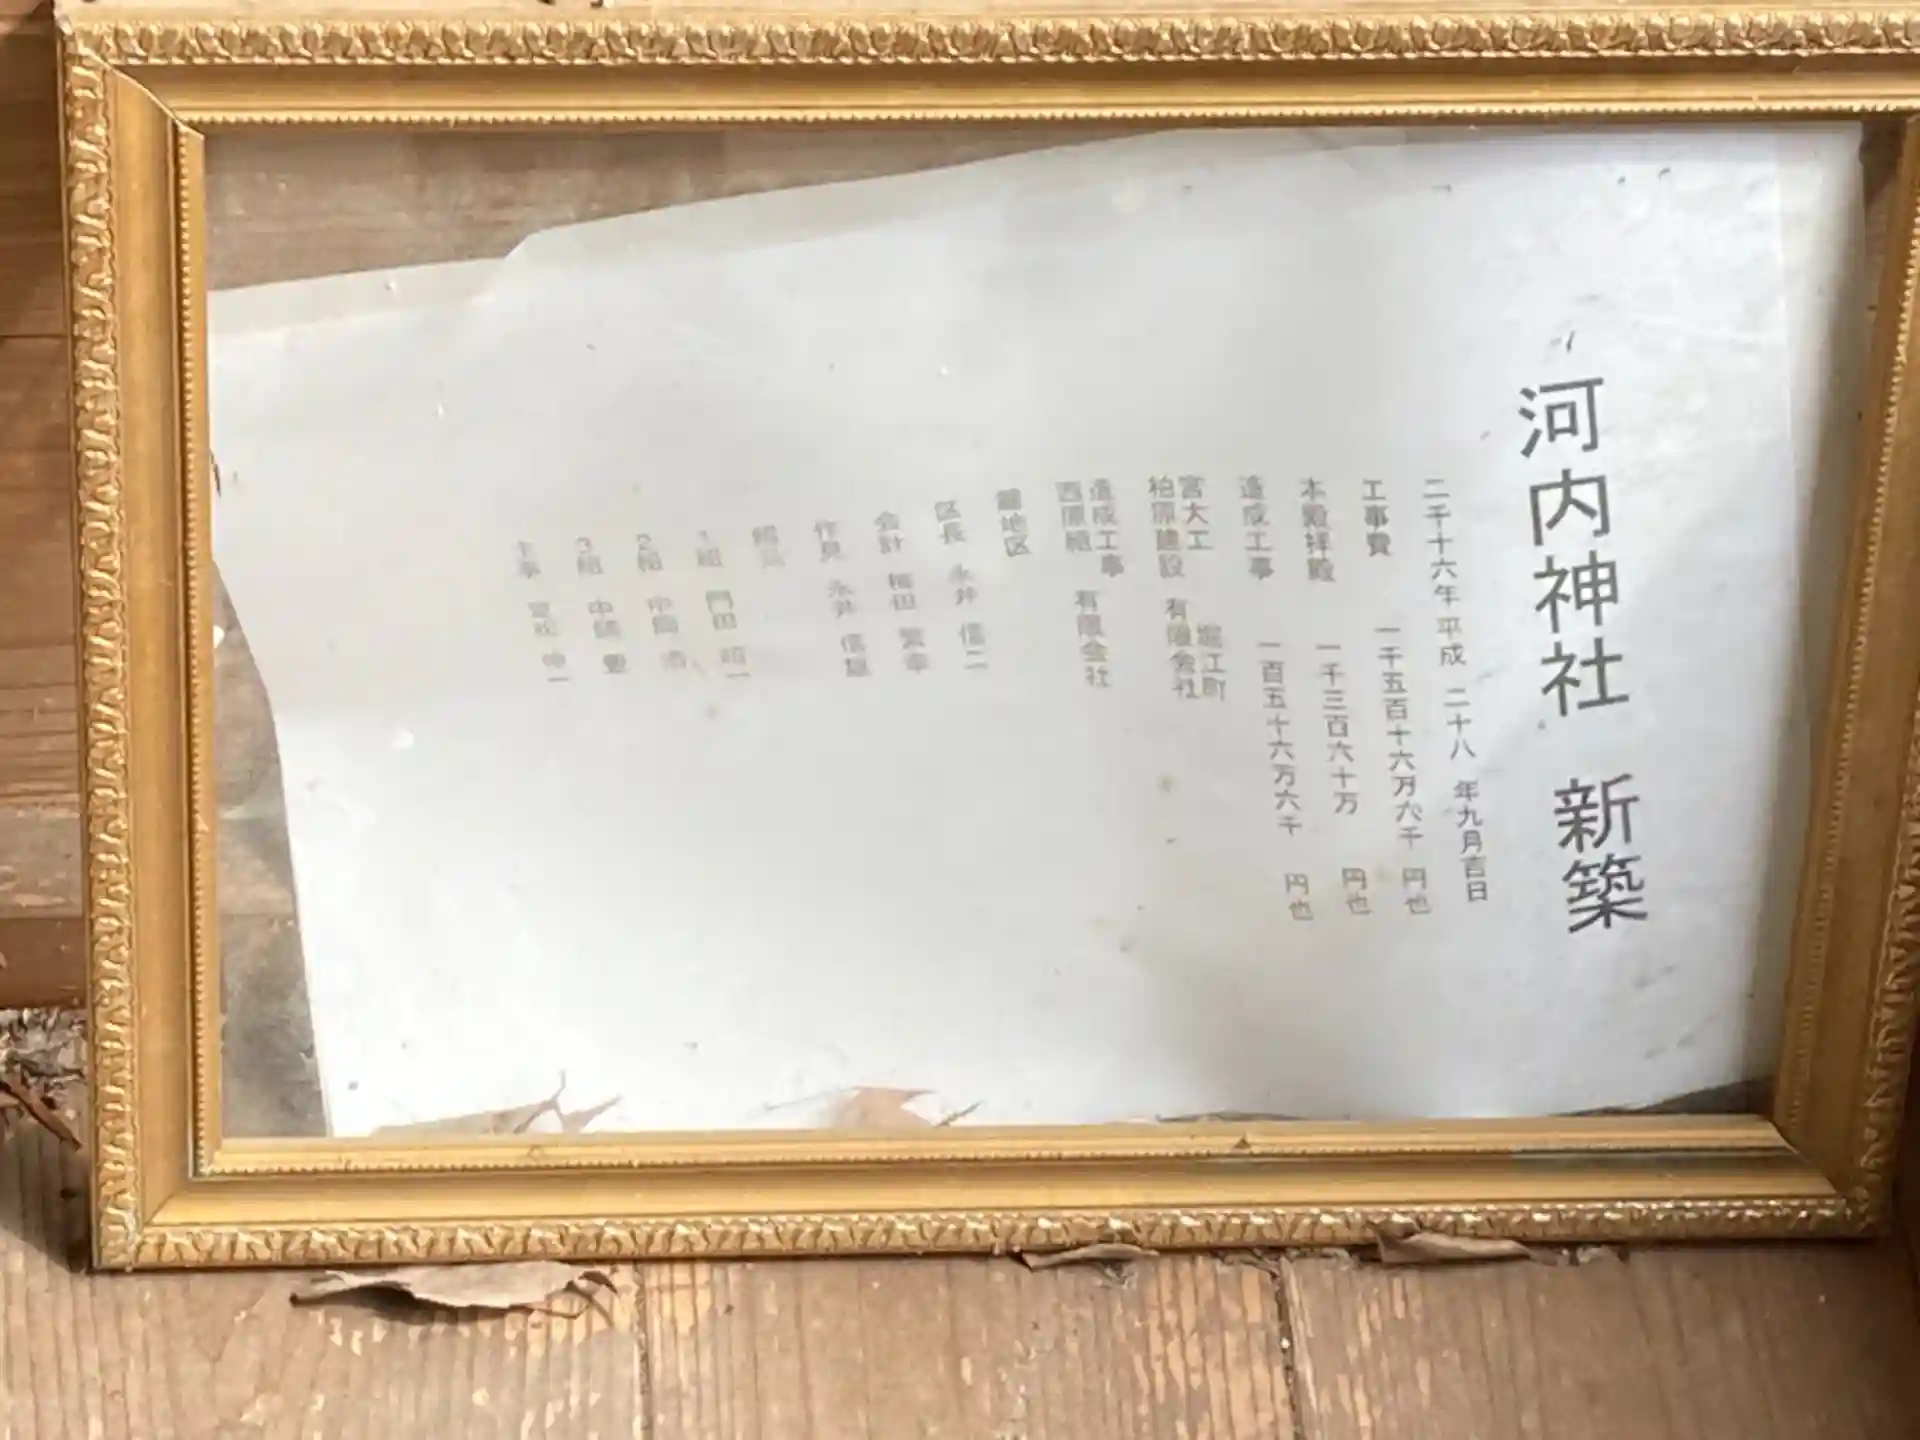 河内神社 新築
二千十六年 平成 二十八 年九月吉日
工事費 一千五百十六万六千 円也
本殿拝殿 一千三百六十万 円也
造成工事 一百五十六万六千 円也
宮大工 堀江町
柏原建設 有限会社
造成工事
西原組 有限会社
地区
区長 永井 信二
会計 植田 繁幸
作見 永井 信雄
組長
1組 門田 昭一
2組 中岡 清
3組 中崎 豊
主事